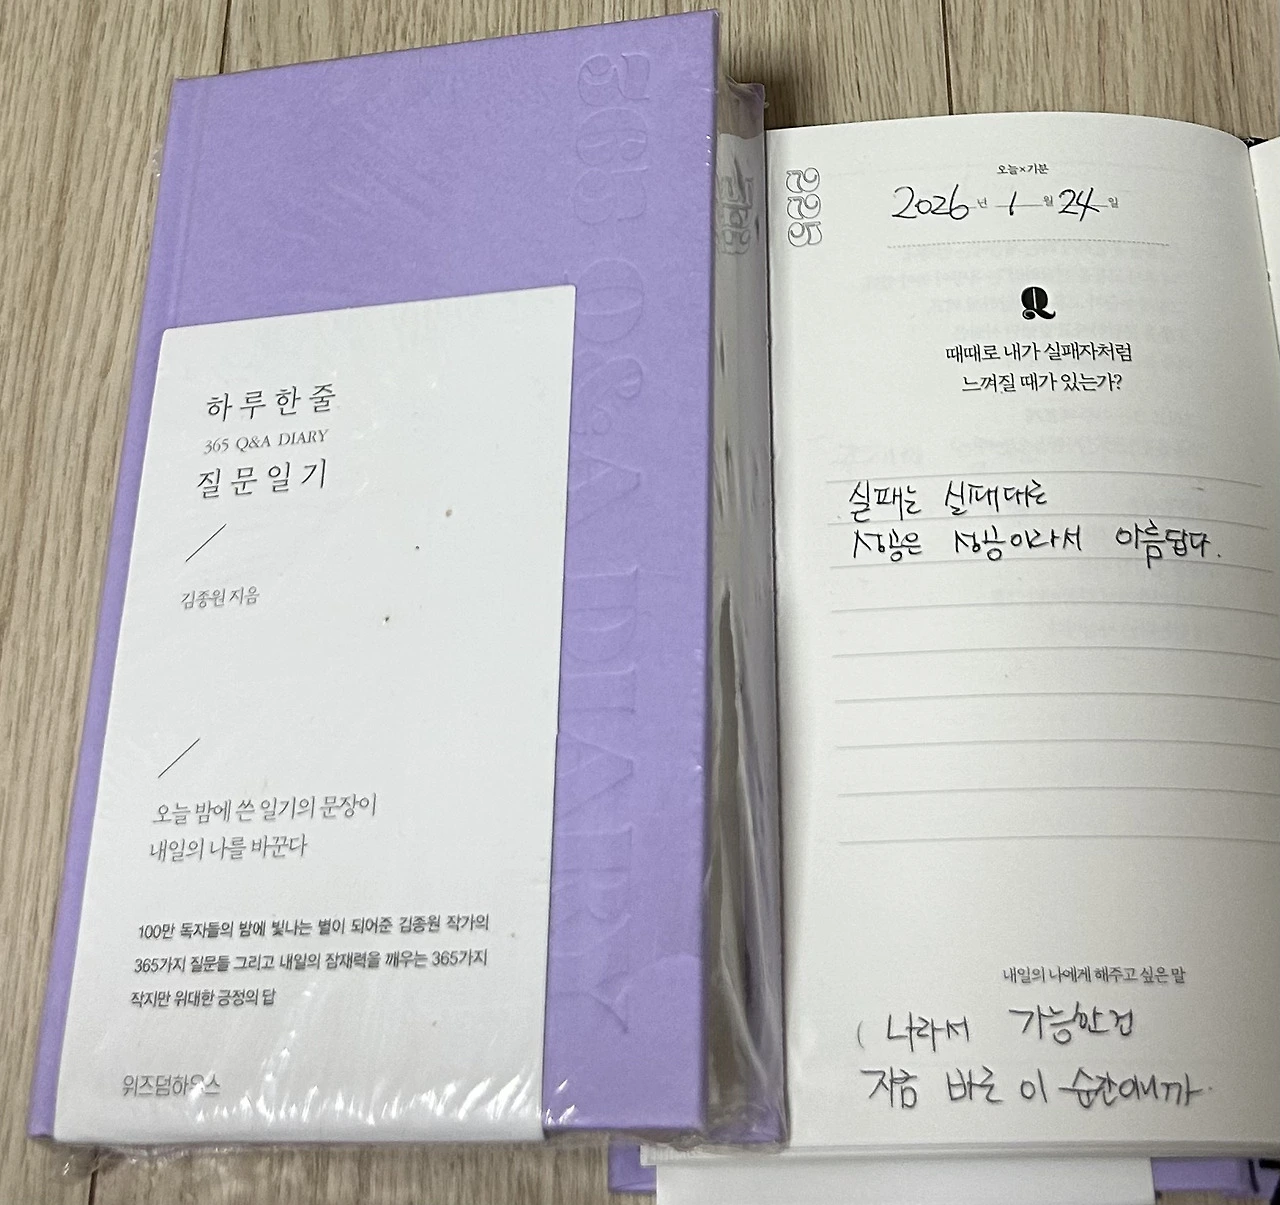 365 Q&A DIARY
하루한줄
365 Q&A DIARY
질문일기
김종원 지음
오늘 밤에 쓴 일기의 문장이
내일의 나를 바꾼다
100만 독자들의 밤에 빛나는 별이 되어준 김종원 작가의
365가지 질문들 그리고 내일의 잠재력을 깨우는 365가지
작지만 위대한 긍정의 답
위즈덤하우스
225
오늘×기분
2026년 1월 24일
Q
때때로 내가 실패자처럼
느껴질 때가 있는가?
실패는 실패대로
성공은 성공이라서 아름답다.
내일의 나에게 해주고 싶은 말
( 나라서 가능한건
지금 바로 이 순간이니까.